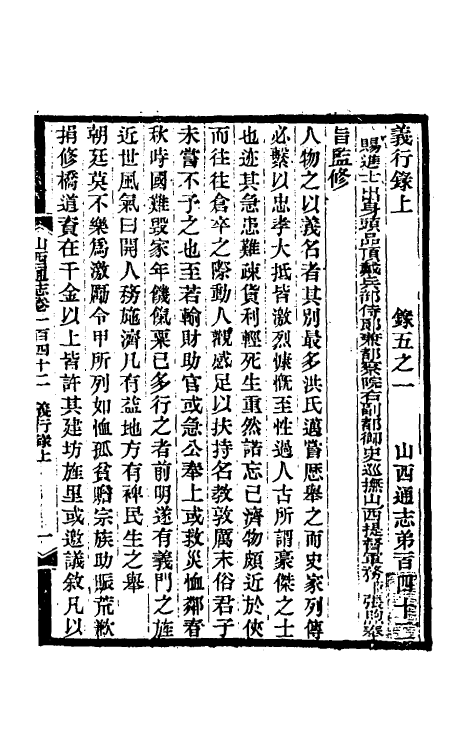 義行錄上　錄五之一　山西通志弟百四十二
賜進士出身頭品頂戴兵部侍郎兼都察院右副都御史巡撫山西提督軍務 張 奉
旨監修
人物之以義名者其別最多洪氏邁嘗歷舉之而史家列傳
必繫以忠孝大抵皆激烈慷慨至性過人古所謂豪傑之士
也迹其急患難疎貨利輕死生重然諾忘己濟物頗近於俠
而往往倉卒之際動人觀感足以扶持名教敦厲末俗君子
未嘗不予之也至若輸財助官或急公奉上或救災恤鄰春
秋時國難毀家年饑餼粟已多行之者前明遂有義門之旌
近世風氣日開人務施濟凡有益地方有裨民生之舉
朝廷莫不樂爲激勵令甲所列如恤孤貧贍宗族助賑荒歉
捐修橋道資在千金以上皆許其建坊旌里或邀議敘凡以
山西通志卷一百四十二　義行錄上　一